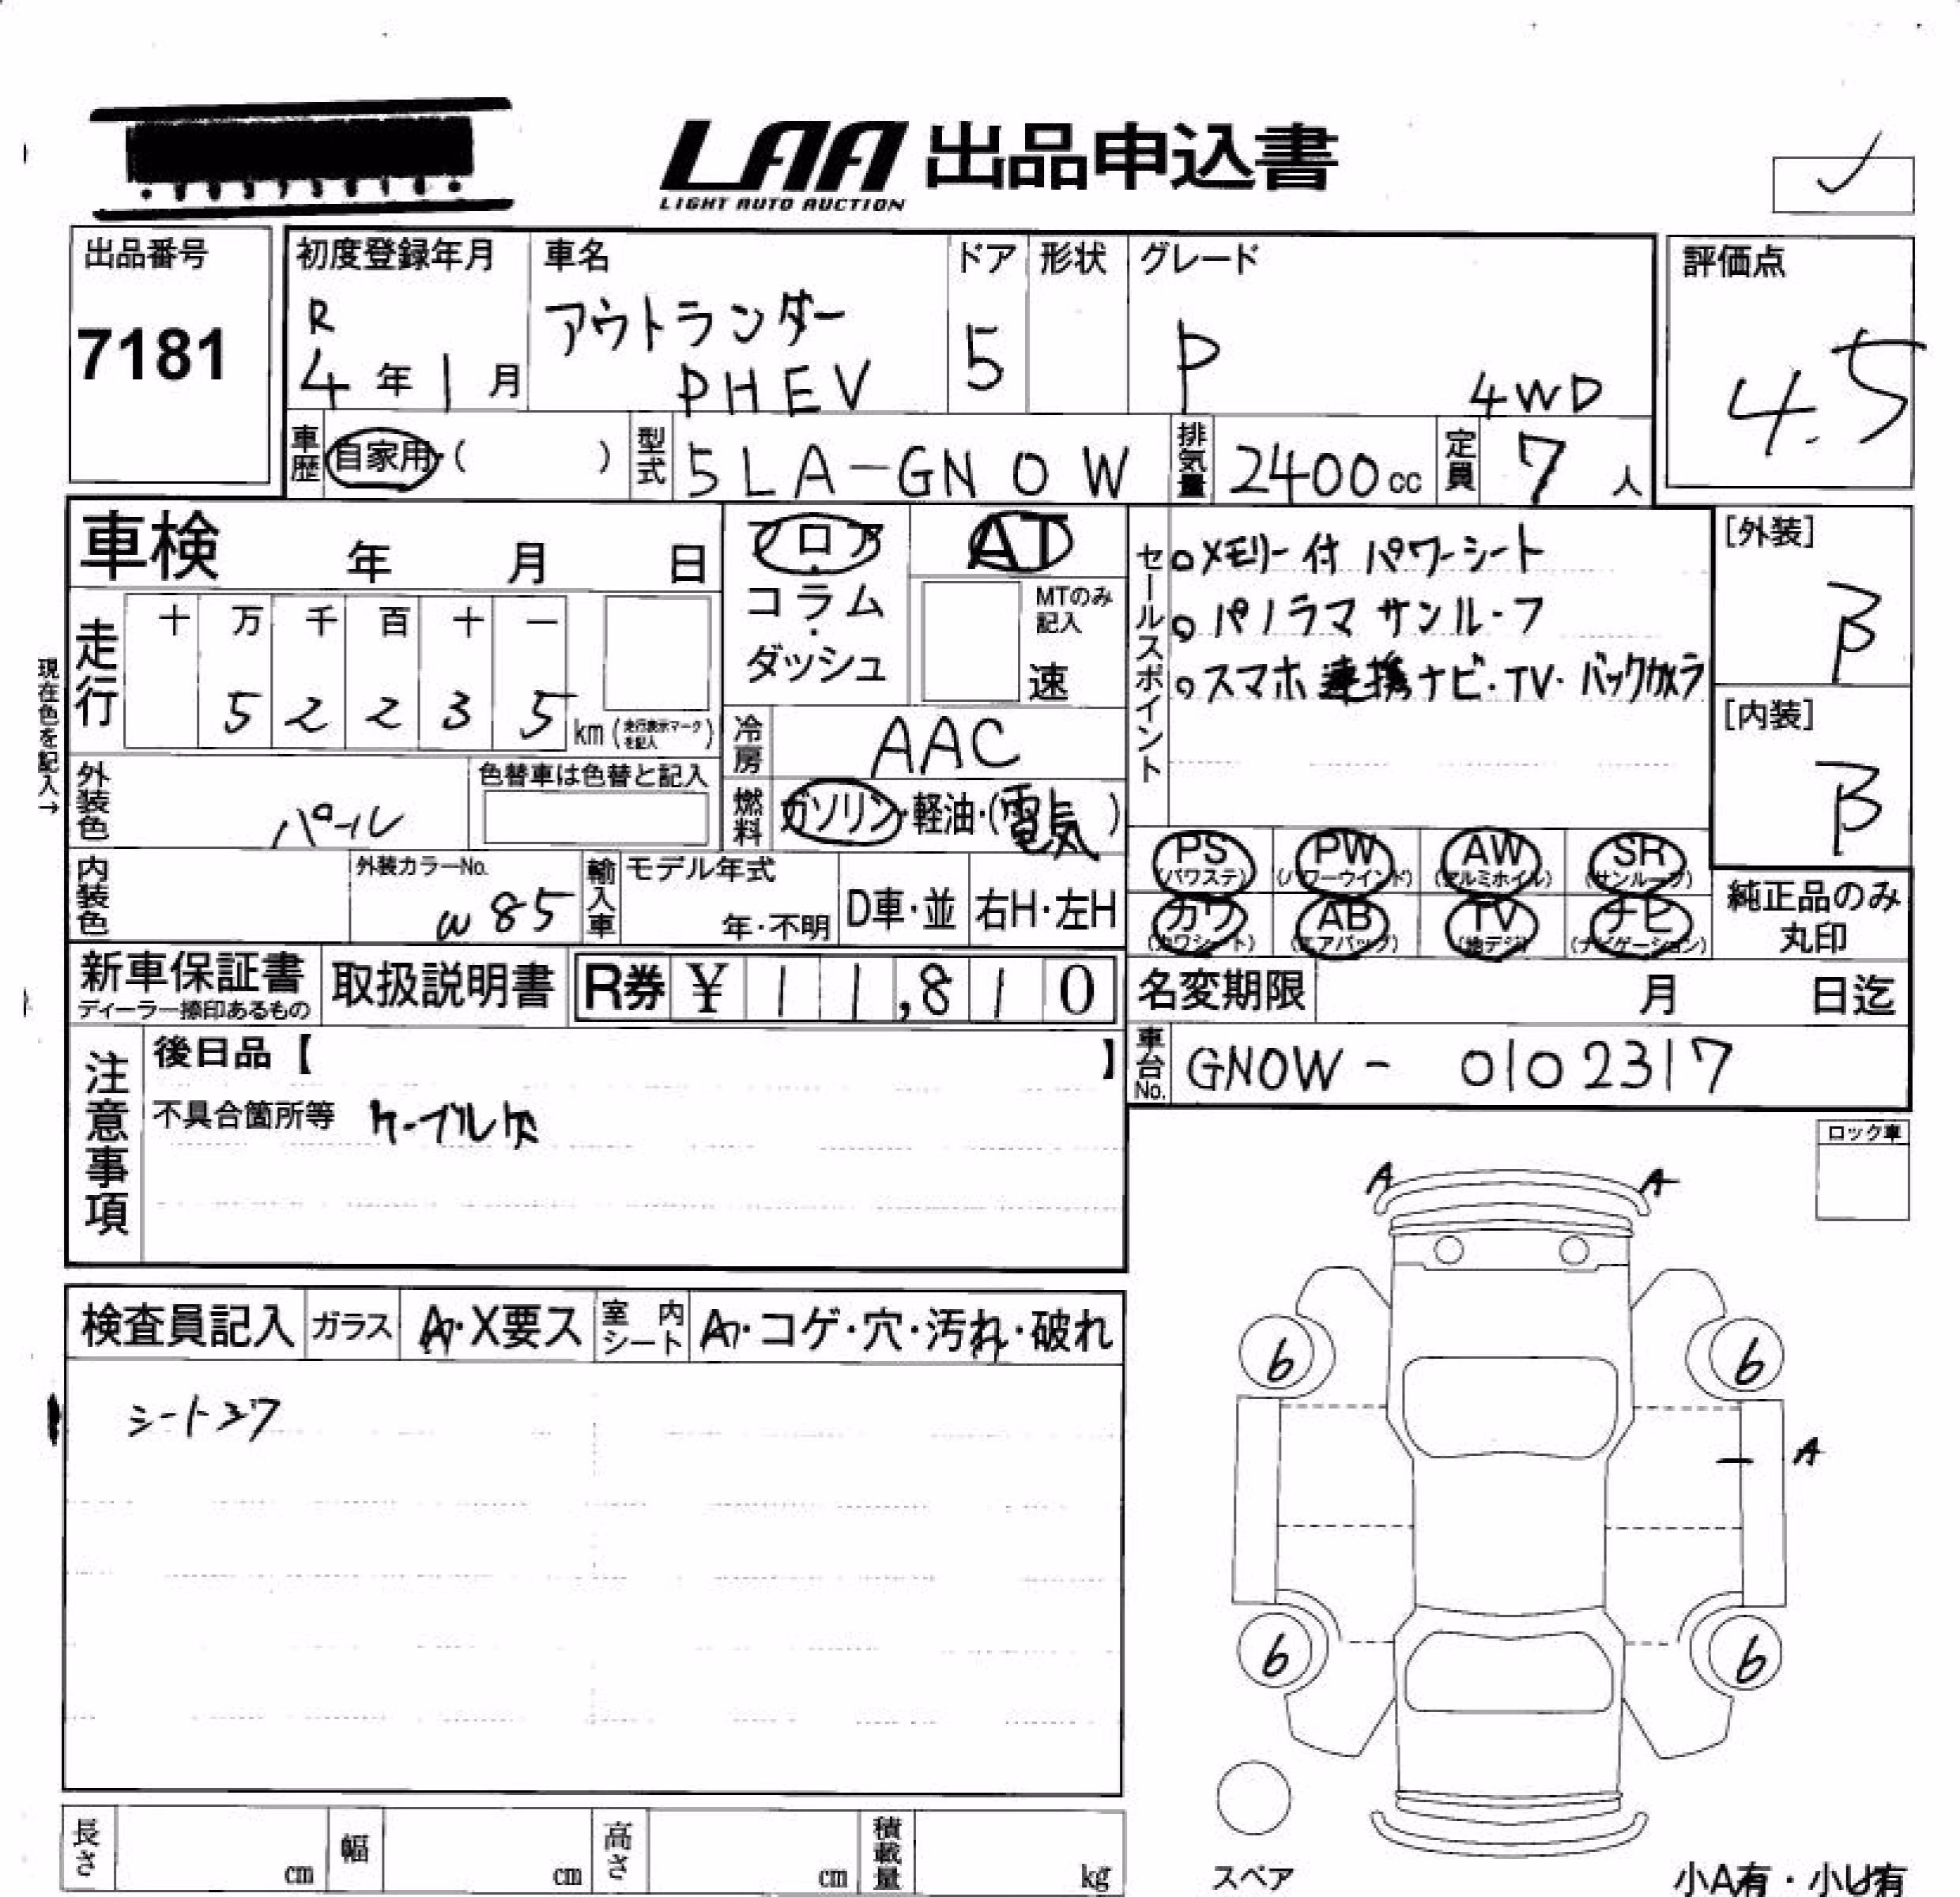 LAA 出品申込書
LIGHT AUTO AUCTION
出品番号
7181
初度登録年月
R
4年1月
車名
アウトランダー
PHEV
ドア
5
形状
グレード
P
4WD
評価点
4.5
車歴
自家用・( )
型式
5LA-GN0W
排気量
2400cc
定員
7人
車検 年 月 日
フロア・コラム・ダッシュ
AT
MTのみ記入
速
セールスポイント
○メモリー付 パワーシート
○パノラマ サンルーフ
○スマホ連携ナビ・TV・バックカメラ
[外装]
B
[内装]
B
現在色を記入→
走行
十 万 千 百 十 一
5 2 2 3 5 km (走行表示マークを記入)
冷房
AAC
燃料
ガソリン・軽油・(電気)
外装色
パール
色替車は色替と記入
内装色
外装カラーNo.
W85
輸入車
モデル年式
年・不明
D車・並
右H・左H
PS (パワステ)
PW (パワーウインド)
AW (アルミホイル)
SR (サンルーフ)
カワ (カワシート)
AB (エアバッグ)
TV (地デジ)
ナビ (ナビゲーション)
純正品のみ丸印
新車保証書
ディーラー捺印あるもの
取扱説明書
R券 ¥11,810
名変期限 月 日迄
車台No.
GN0W - 0102317
注意事項
後日品【 】
不具合箇所等 ケーブル欠
ロック車
A A
検査員記入
ガラス
・X要ス
室内シート
・コゲ・穴・汚れ・破れ
6 6
A
6 6
長さ cm
幅 cm
高さ cm
積載量 kg
スペア
小A有・小U有